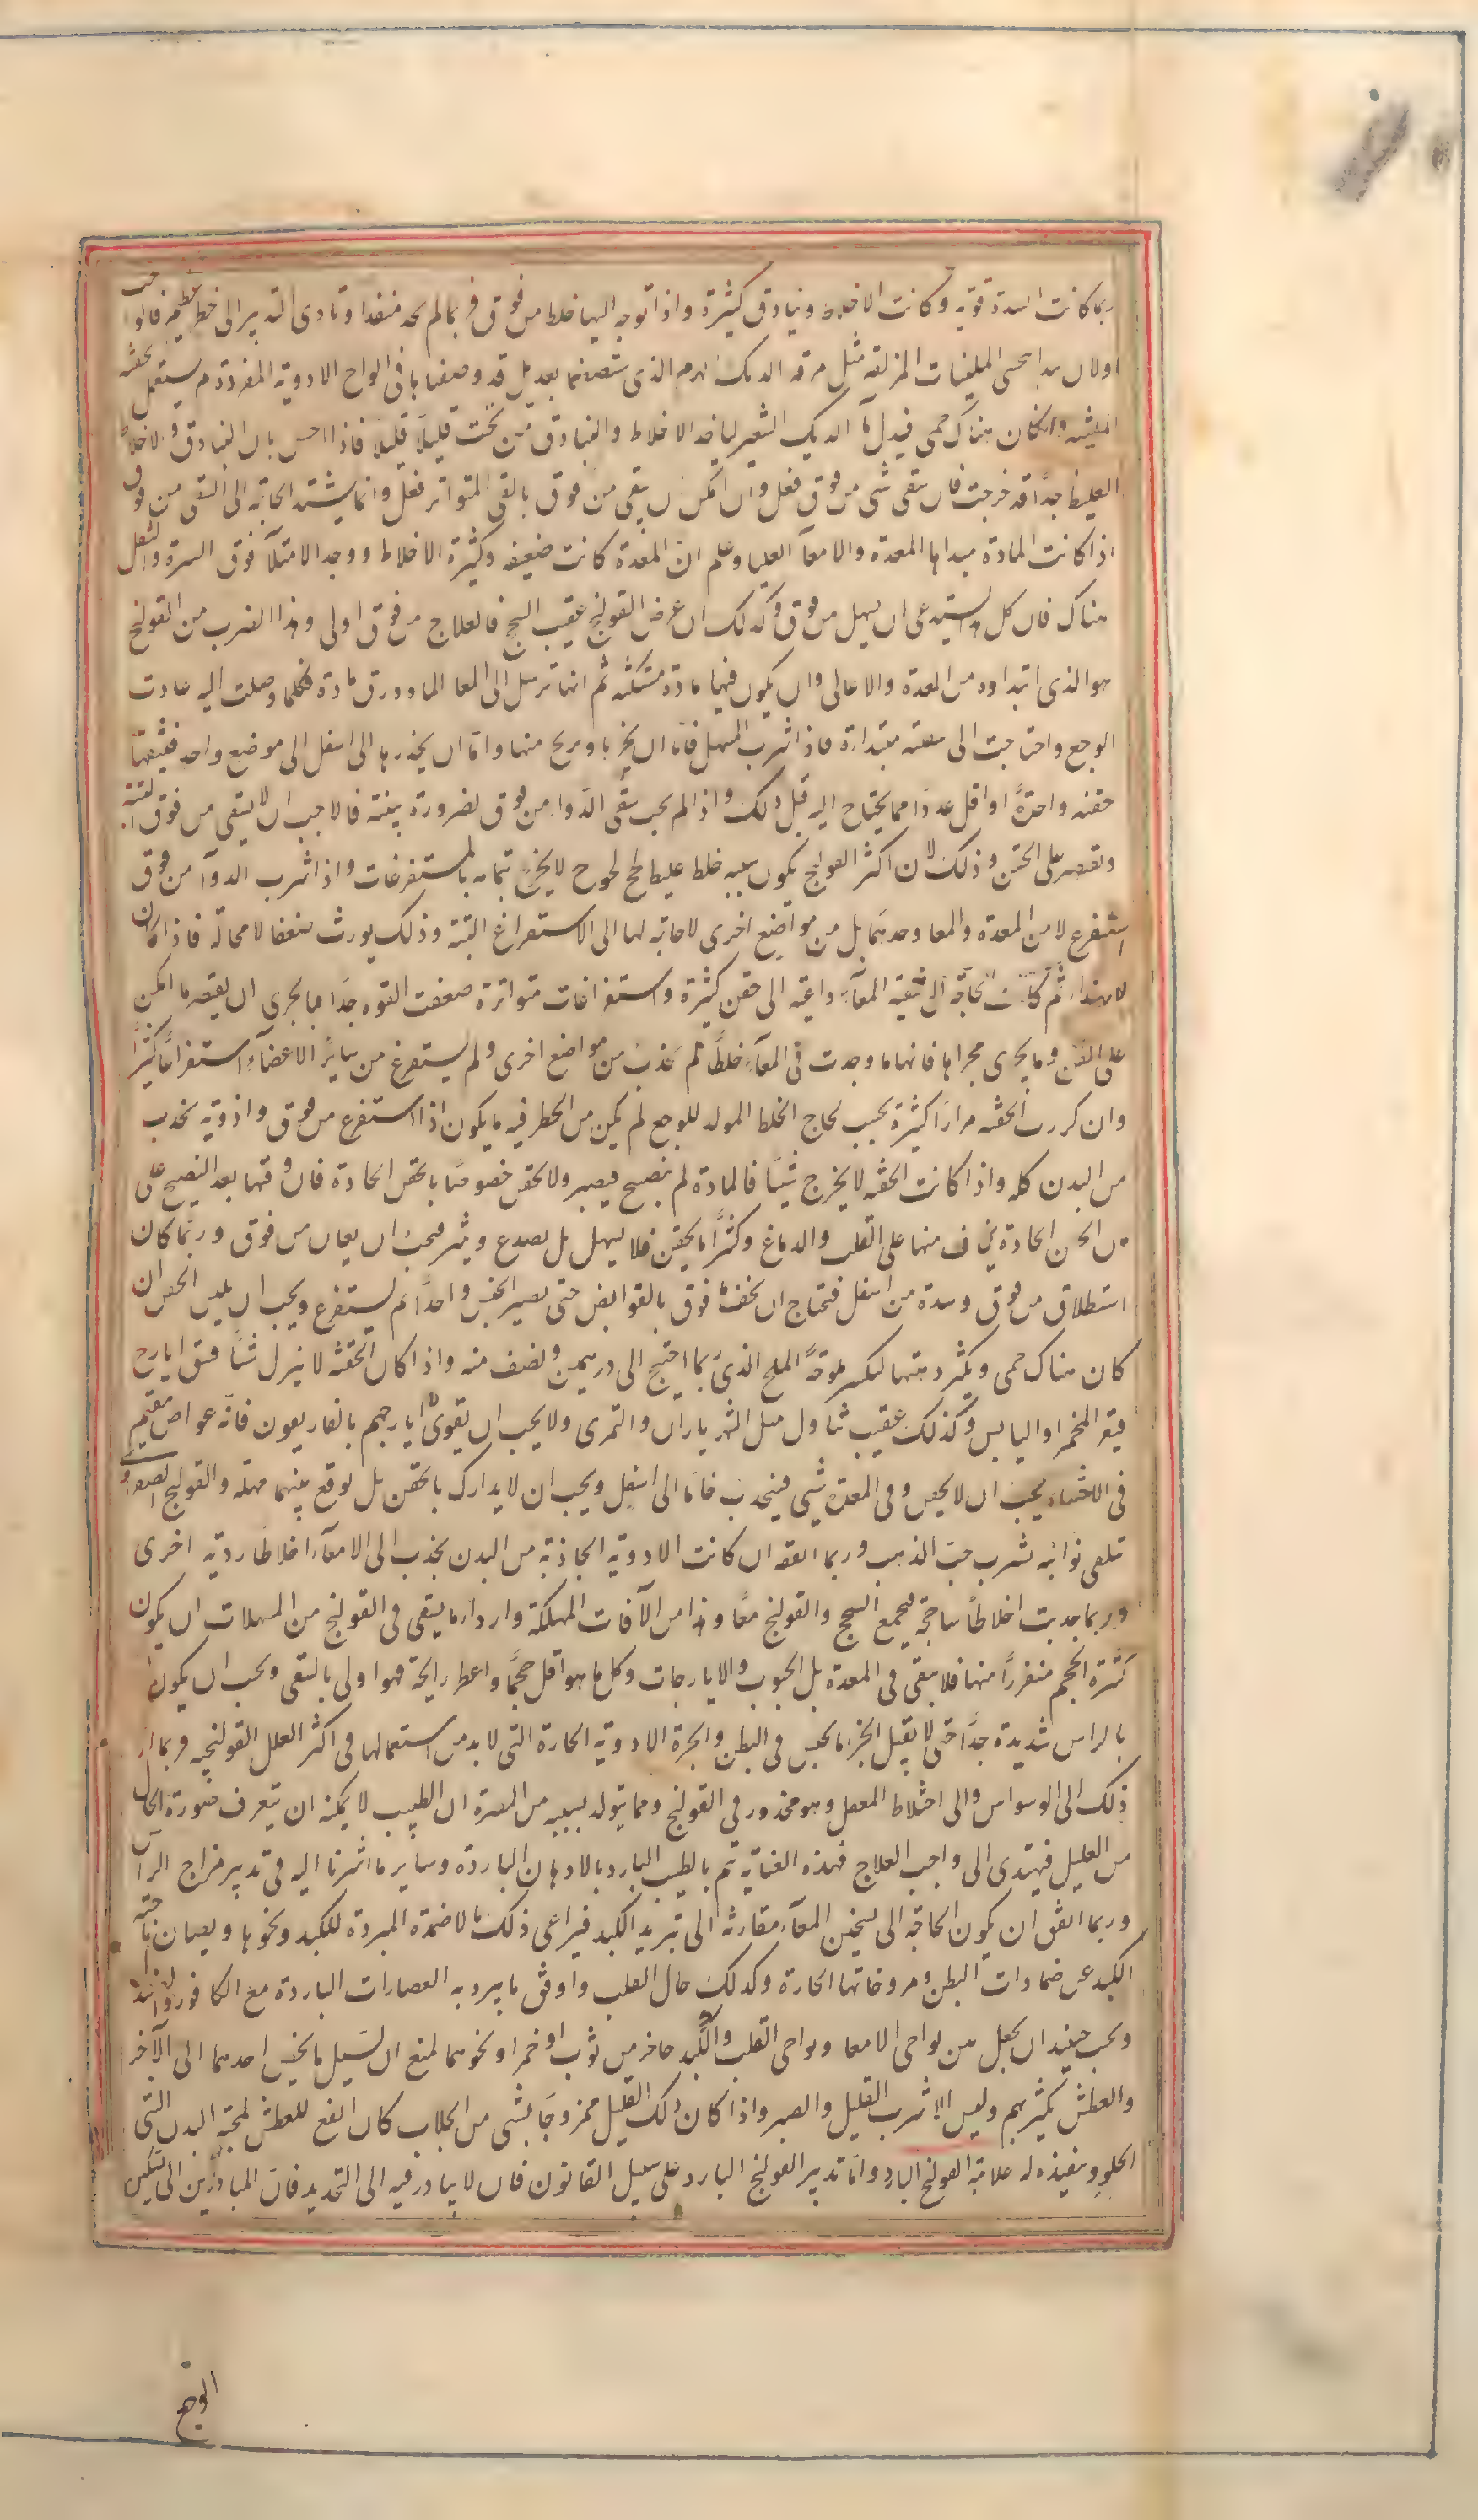 ربما كانت السدة قوية وكانت الاخلاط وبنادق كثيرة واذا توجه اليها خلط من فوق فربما لم يجد منفذا وتادى التدبير الى خطر عظيم فالواجب
اولا ان يبدا بحسى الملينات المزلقة مثل مرقه الديك الهرم الذى نصفها بعد بل قد وصفناها فى الواح الادوية المفردة ثم يستعمل بحقنه
الملينة وان كان هناك حمى فبدل ماء الديك الشعير لياخذ الاخلاط والبنادق من تحت قليلا قليلا فاذا احس بان البنادق والاخلاط
الغليظة جدا قد خرجت فان بقى شى من فوق فعل وان امكن ان ينقى من فوق بالقى المتواتر فعل وانما يشتد الحاجة الى التنقى من فوق
اذا كانت المادة مبداها المعدة والامعآء العليا وعلم انّ المعدة كانت ضعيفه وكثيرة الاخلاط ووجد الامتلآ فوق السرة والثقل
هناك فان كل هذا يستدعى ان يسهل من فوق وكذلك ان عرض القولنج عقيب السحج فالعلاج من فوق اولى وهذا الضرب من القولنج
هو الذى ابتداوه من المعدة والاعالى وان يكون فيها مادة مستكنه ثم انها ترسل الى المعا الماووف مادة فكلما وصلت اليه عادت
الوجع واحتاجت الى تنقيه مبتداة فاذا شرب المسهل فاما ان يخرجها ويريح منها واما ان يحذرها الى اسفل الى موضع واحد فينقيها
حقنه واحدة او اقل عددا مما يحتاج اليه قبل ذلك واذا لم يجب سقى الدوآء من فوق لضرورة بينة فالاحب ان لا يسقى من فوق البتة
وتقصر على الحقن وذلك لان اكثر القولنج يكون سببه خلط غليظ لحج لحوح لا يخرج بتمامه بالمستفرغات واذا شرب الدوآ من فوق
استفرغ لا من المعدة والمعا وحدهما بل من مواضع اخرى لا حاجة لها الى الاستفراغ البتة وذلك يورث ضعفا لا محالة فاذا كان
لا بهذا ثم كانت الحاجة الى تنقية المعآء داعية الى حقن كثيرة واستفراغات متواترة ضعفت القوه جدا فبالحرى ان يقتصر ما امكن
على الحقن وما يجرى مجراها فانها ما وجدت فى المعآء خلطا لم تجذب من مواضع اخرى ولم يستفرغ من ساير الاعضآء استفراغا كثيرا
وان كررت الحقنه مرارا كثيرة بحسب لحاج الخلط المولد للوجع لم يكن من الخطر فيه ما يكون اذا استفرغ من فوق وادوية تجذب
من البدن كله واذا كانت الحقنه لا يخرج شيئا فالمادة لم ينضج فيصبر ولا يحقن خصوصا بالحقن الحادة فان وقتها بعد النضج على
ان الحقن الحادة يخاف منها على القلب والدماغ وكثيرا ما يحقن فلا يسهل بل يصدع ويثير فيجب ان يعان من فوق وربما كان
استطلاق من فوق وسدة من اسفل فتحتاج ان يجفف فوق بالقوابض حتى يصير الجنس واحدا ثم يستفرغ ويجب ان يلين الحقن ان
كان هناك حمى ويكثر دهنها ليكسر ملوحة الملح الذى ربما احتيج الى درهمين ونصف منه واذا كان الحقنة لا ينزل شيئا فسق ايارج
فيقرا المخمر او اليابس وكذلك عقيب تناول مثل الشهرياران والتمرى ولا يجب ان يقوى ايارجهم بالغاريقون فانه غواص مقيم
فى الاحشاء ويجب ان لا يحقن وفى المعدة شى فينجذب خاما الى اسفل ويجب ان لا يدارك بالحقن بل يوقع بينهما مهلة والقولنج الصفراوى
تلقى نوائبه بشرب حب الذهب وربما اتفق ان كانت الادوية الجاذبة من البدن يجذب الى الامعآء اخلاطا ردية اخرى
وربما جذبت اخلاطا ساحجة فيجمع السحج والقولنج معا وهذا من الآفات المهلكة واردأ ما يسقى فى القولنج من المسهلات ان يكون
كثيرة الحجم متغززا منها فلا يبقى فى المعدة بل الحبوب والايارجات وكل ما هو اقل حجما واعطر رايحة فهو اولى بالسقى ويجب ان يكون
بالراس شديدة جدا حتى لا يقبل ابخرة ما يحتبس فى البطن وابخرة الادوية الحارة التى لا بد من استعمالها فى اكثر العلل القولنجيه فربما ادى
ذلك الى الوسواس والى اختلاط العقل وهو محذور فى القولنج ومما يتولد بسببه من المضرة ان الطبيب لا يمكنه ان يتعرف صورة الحال
من العليل فيهتدى الى واجب العلاج فهذه العناية يتم بالطيب البارد بالادهان الباردة وساير ما اشرنا اليه فى تدبير مزاج الراس
وربما اتفق ان يكون الحاجة الى تسخين المعآء مقارنة الى تبريد الكبد فيراعى ذلك بالاضمدة المبردة للكبد ونحوها ويصان ناحية
الكبد عن ضمادات البطن ومروخاتها الحارة وكذلك حال القلب واوفق ما يبرد به العصارات الباردة مع الكافور والصندل
ويجب حينئذ ان يجعل بين نواحى الامعا ونواحى القلب والكبد حاجز من ثوب او خمير او نحوهما يمنع ان يسيل ما يخص احدهما الى الآخر
والعطش يكثر بهم وليس الا شرب القليل والصبر واذا كان ذلك القليل ممزوجا بشى من الجلاب كان انفع للعطش لمحبة البدن الشى
الحلو وتنفيذه له علامة القولنج البارد واما تدبير القولنج البارد على سبيل القانون فان لا يبادر فيه الى التخدير فان المبادرين الى تسكين
الوجع